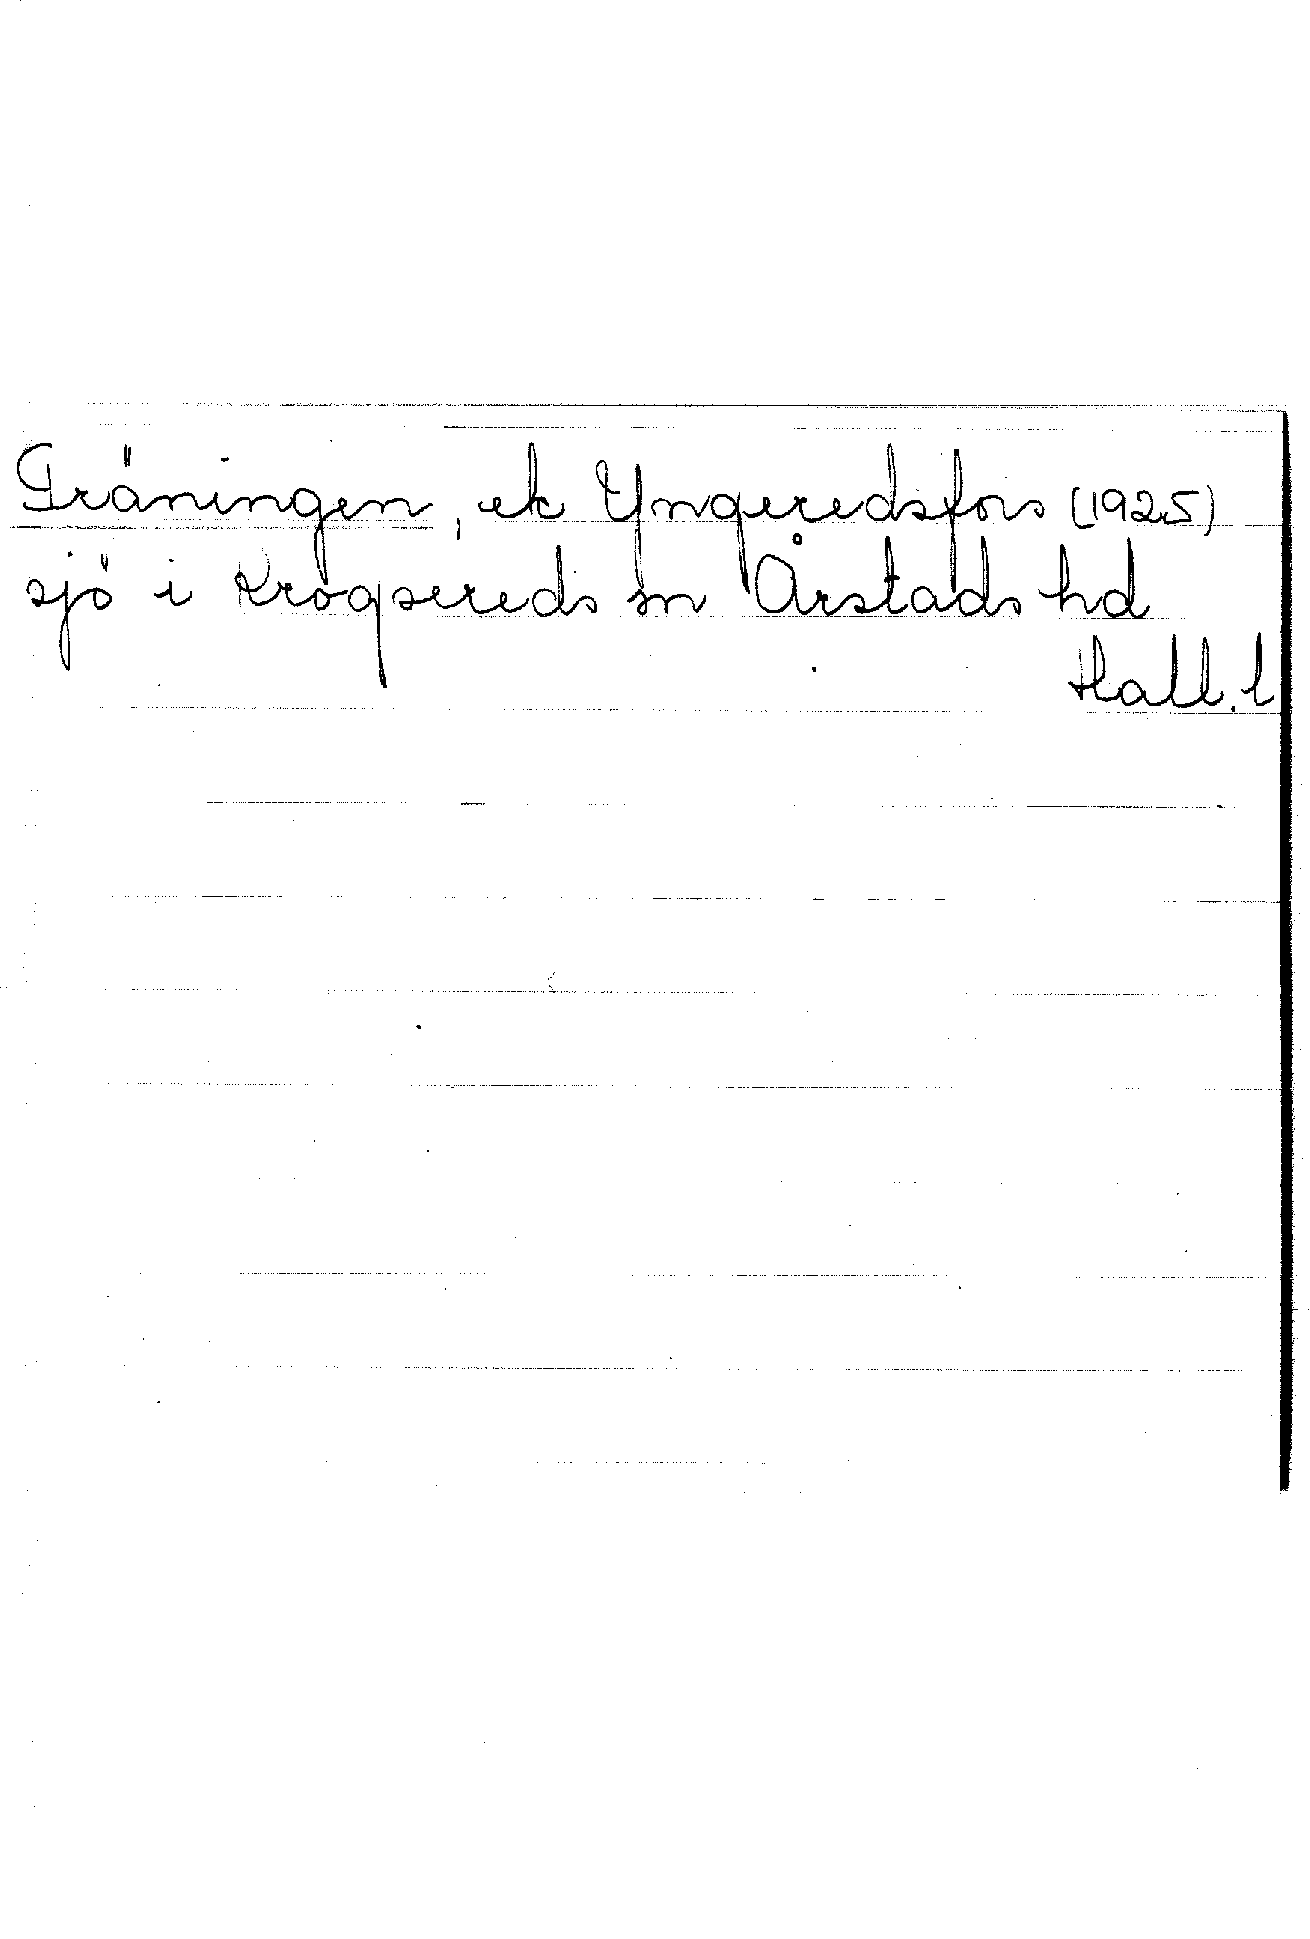 Gräningen, ek Yngeredsfors (1925)
sjö i Krogsereds sn Årstads hd
Hall. l